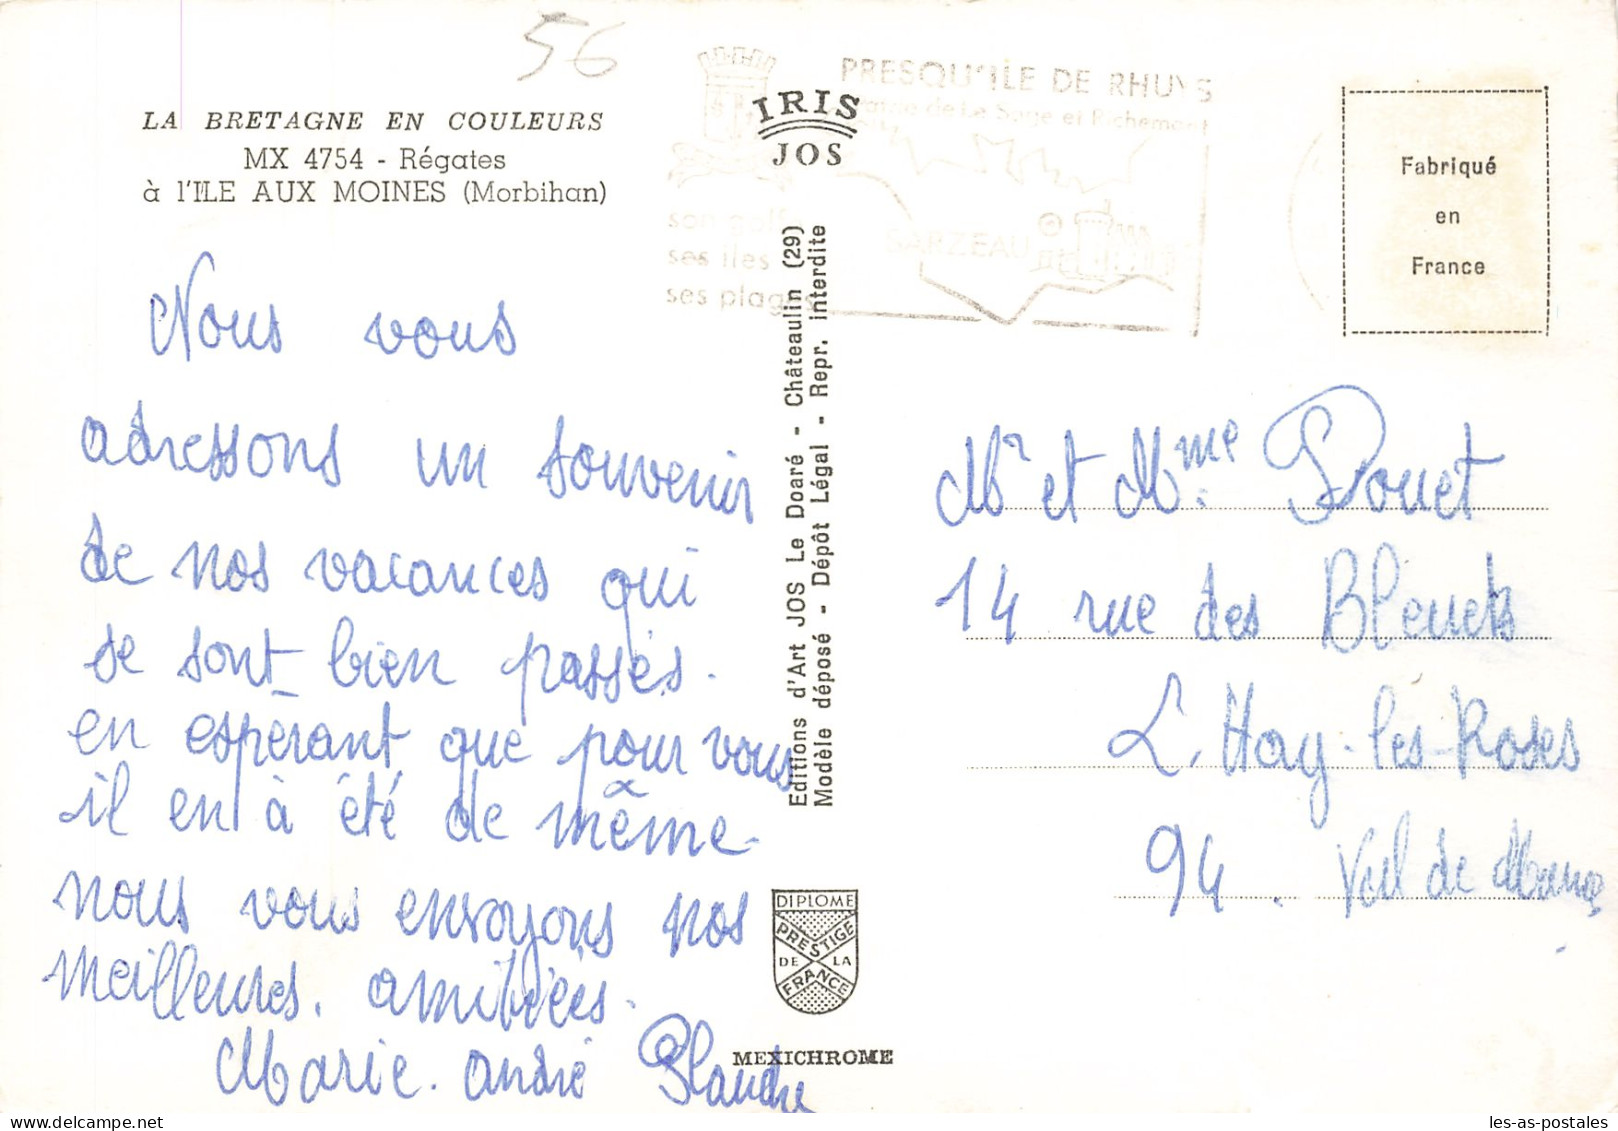 56
LA BRETAGNE EN COULEURS
MX 4754 - Régates
à l'ILE AUX MOINES (Morbihan)
Nous vous
adressons un souvenir
de nos vacances qui
se sont bien passés.
en espérant que pour vous
il en à été de même.
nous vous envoyons nos
meilleures. amitiées.
Marie. André
IRIS
JOS
Editions d'Art JOS Le Doaré - Châteaulin (29)
Modèle déposé - Dépôt Légal - Repr. interdite
DIPLOME
PRESTIGE
DE LA
FRANCE
MEXICHROME
PRESQU'ILE DE RHUYS
de Le Sage et Richemont
son golfe
ses îles
ses plages
SARZEAU
Fabriqué
en
France
Mr et Mme. Douet
14 rue des Bleuets
L'Hay-les-Roses
94. Val de Marne
les-as-postales